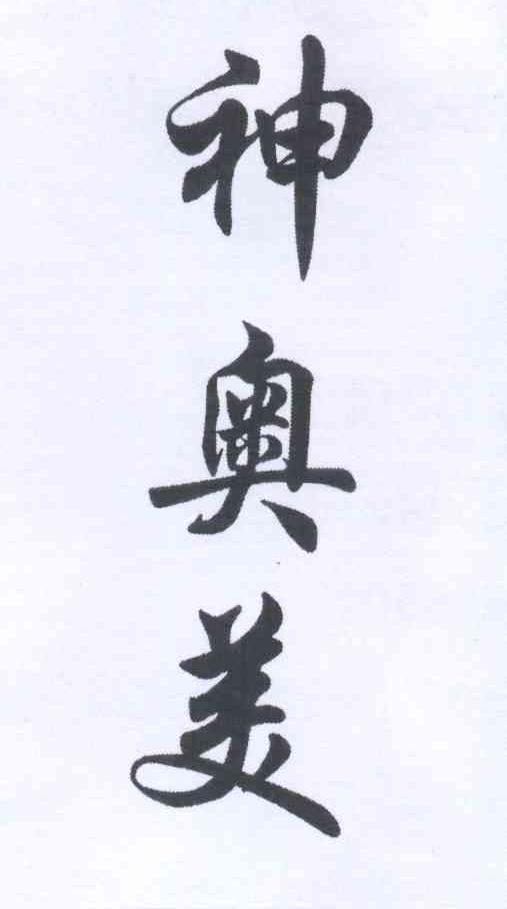 神奥美